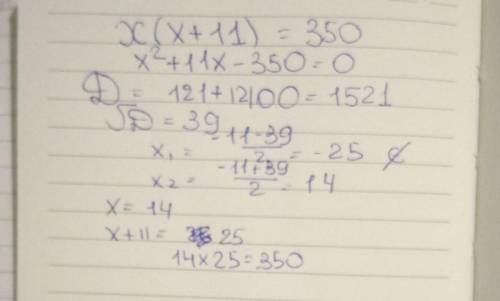 x(x+11) = 350
x²+11x-350=0
D = 121+12100=1521
√D = 39
x₁ = -11-39/2 = -25 ¢
x₂ = -11+39/2 = 14
x= 14
x+11= 25
14×25=350